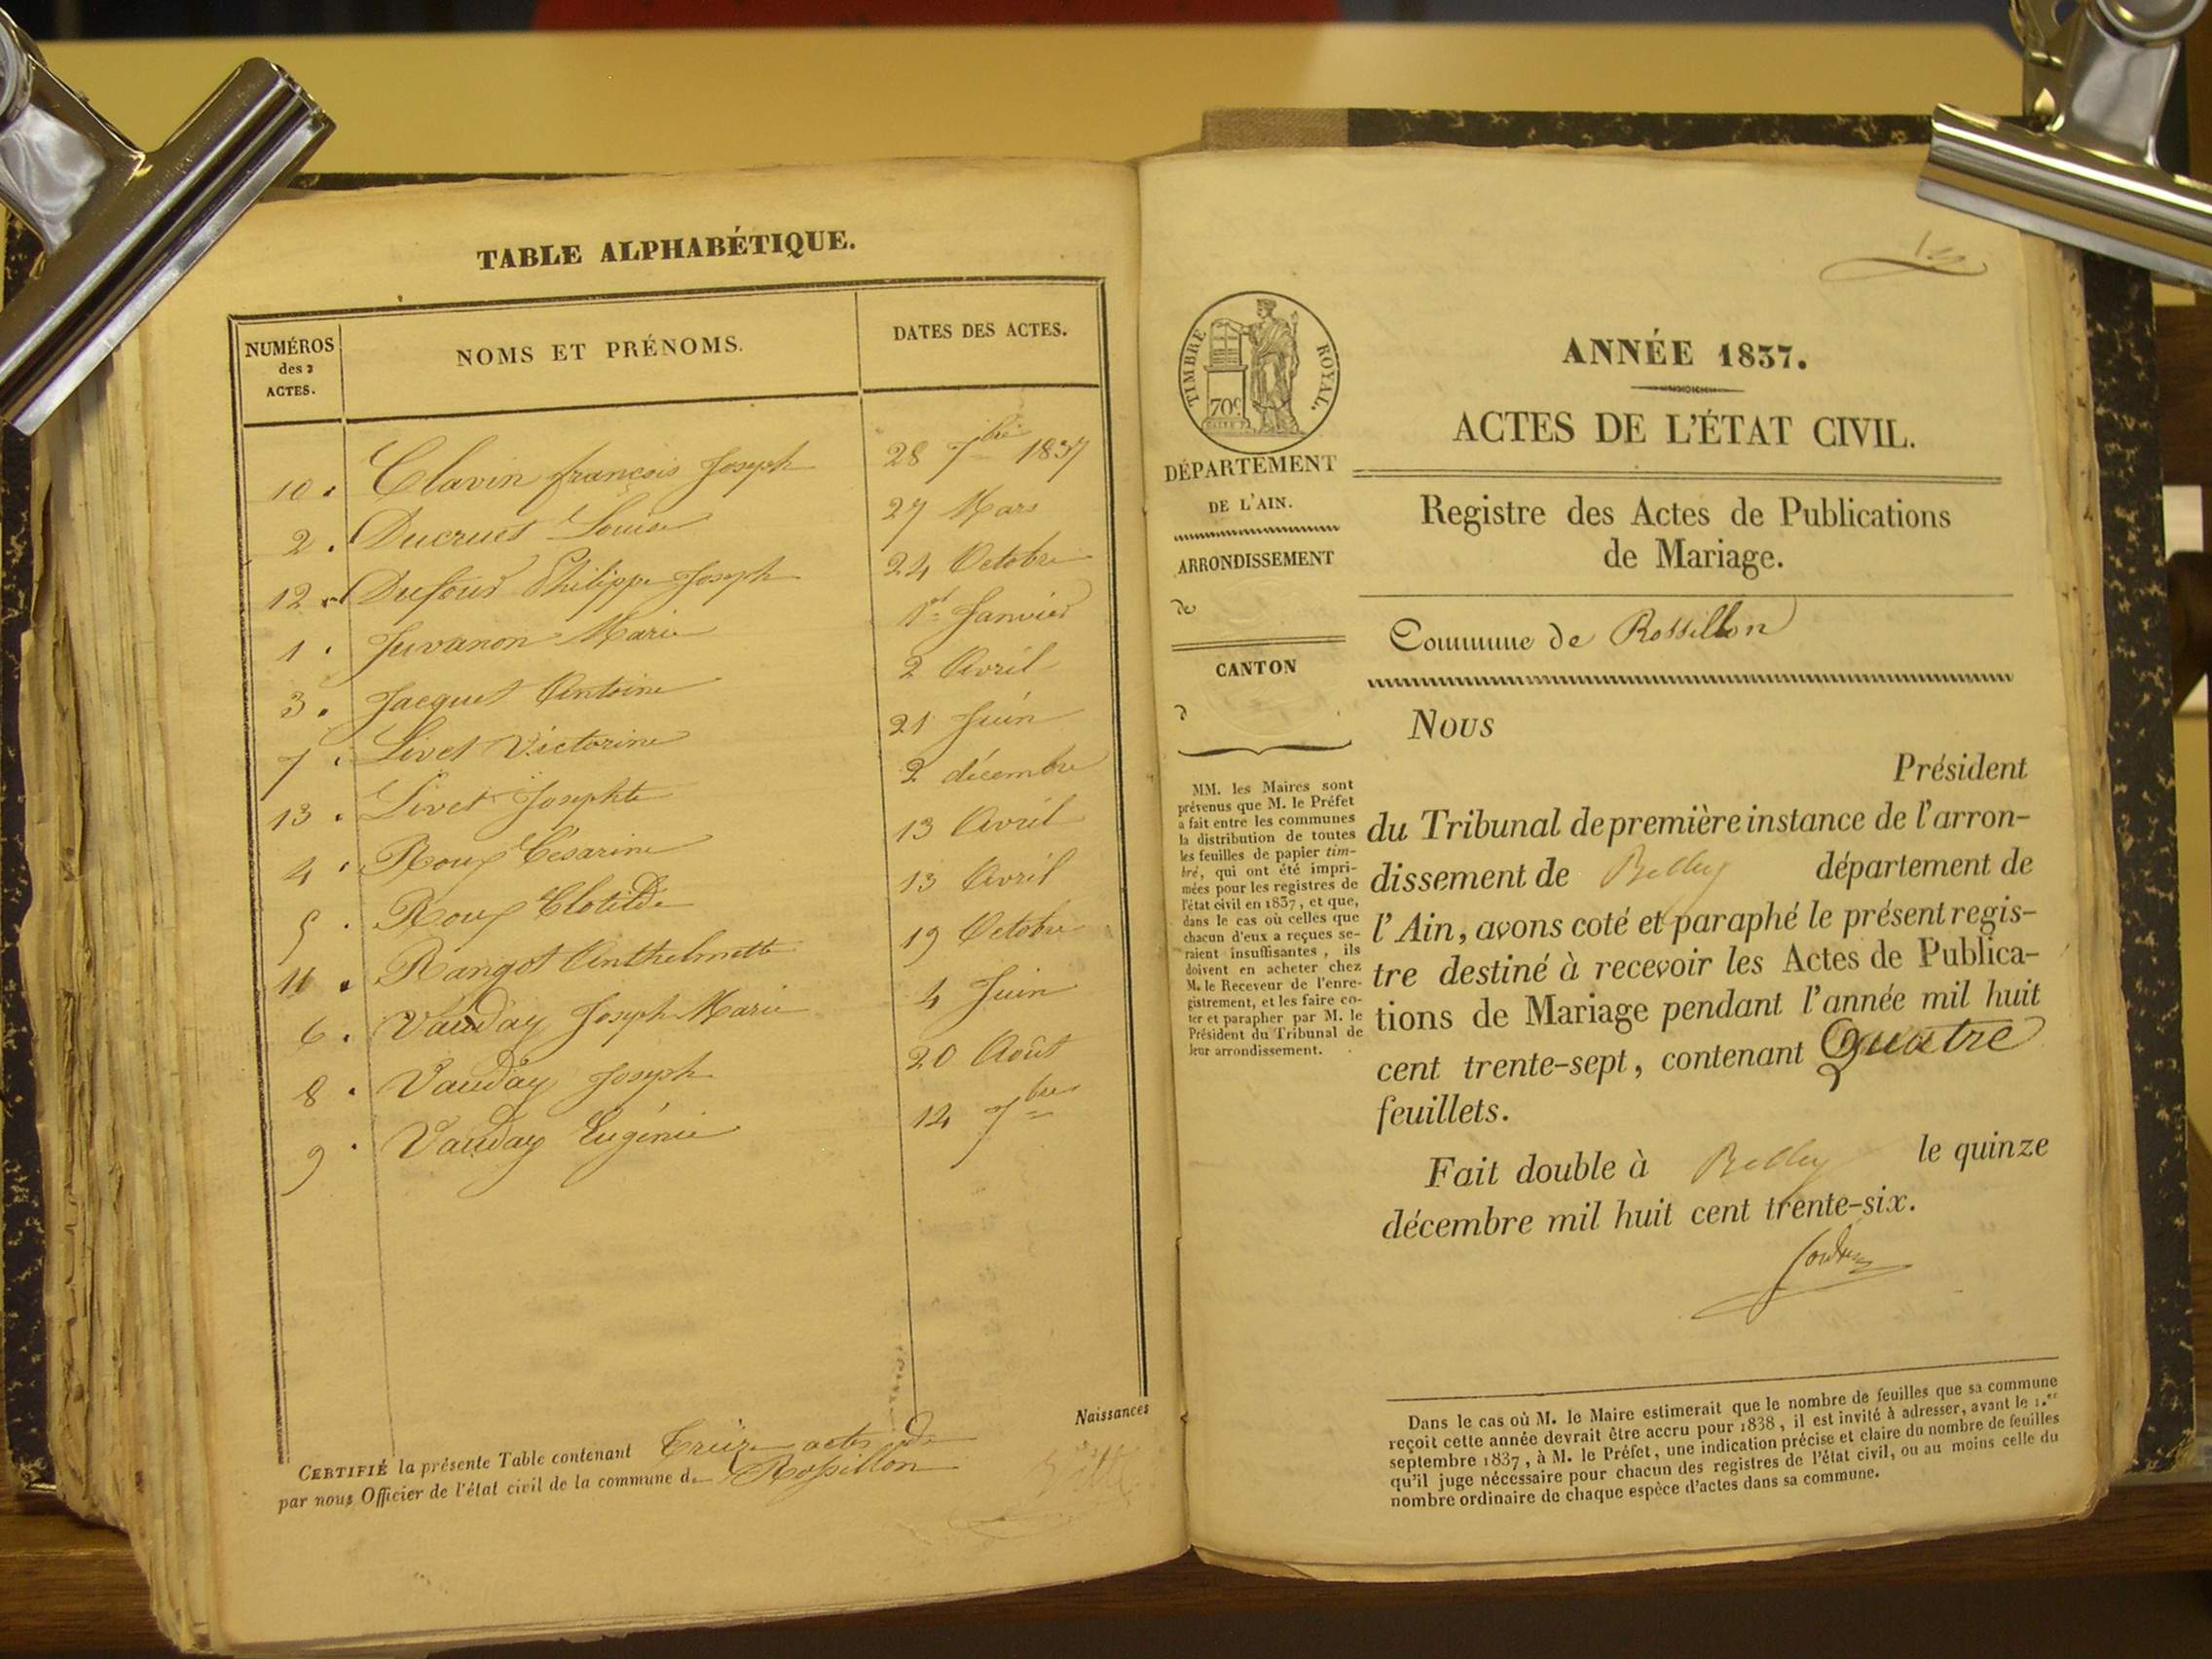 TABLE ALPHABÉTIQUE.
NUMÉROS des ACTES.
NOMS ET PRÉNOMS.
DATES DES ACTES.
10. Clavin françois Joseph 28 7bre 1837
2. Ducruet Louise 27 Mars
12. Dufour Philippe Joseph 24 Octobre
1. Juvanon Marie 1er Janvier
3. Jacquet Antoine 2 Avril
7. Livet Victorine 21 Juin
13. Livet Josephte 2 décembre
4. Roux Césarine 13 Avril
5. Roux Clotilde 13 Avril
11. Rangot Anthelmette 19 Octobre
6. Vauday Joseph Marie 4 Juin
8. Vauday Joseph 20 Août
9. Vauday Eugénie 12 7bre
Naissances
CERTIFIÉ la présente Table contenant Treize actes de
par nous Officier de l'état civil de la commune de Rossillon
TIMBRE ROYAL.
70c
DÉPARTEMENT
DE L'AIN.
ARRONDISSEMENT
de
CANTON
d
MM. les Maires sont
prévenus que M. le Préfet
a fait entre les communes
la distribution de toutes
les feuilles de papier tim-
bré, qui ont été impri-
mées pour les registres de
l'état civil en 1837, et que,
dans le cas où celles que
chacun d'eux a reçues se-
raient insuffisantes, ils
doivent en acheter chez
M. le Receveur de l'enre-
gistrement, et les faire co-
ter et parapher par M. le
Président du Tribunal de
leur arrondissement.
ANNÉE 1837.
ACTES DE L'ÉTAT CIVIL.
Registre des Actes de Publications
de Mariage.
Commune de Rossillon
Nous
Président
du Tribunal de première instance de l'arron-
dissement de Belley département de
l'Ain, avons coté et paraphé le présent regis-
tre destiné à recevoir les Actes de Publica-
tions de Mariage pendant l'année mil huit
cent trente-sept, contenant Quatre
feuillets.
Fait double à Belley le quinze
décembre mil huit cent trente-six.
Dans le cas où M. le Maire estimerait que le nombre de feuilles que sa commune
reçoit cette année devrait être accru pour 1838, il est invité à adresser, avant le 1.er
septembre 1837, à M. le Préfet, une indication précise et claire du nombre de feuilles
qu'il juge nécessaire pour chacun des registres de l'état civil, ou au moins celle du
nombre ordinaire de chaque espèce d'actes dans sa commune.